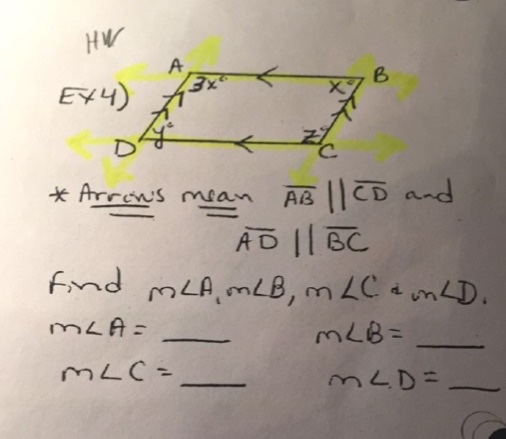 HW
Ex4)
A
B
3x°
x°
y°
z°
D
C
* Arrows mean AB || CD and
AD || BC
Find m∠A, m∠B, m∠C & m∠D.
m∠A = ____ m∠B = ____
m∠C = ____ m∠D = ____